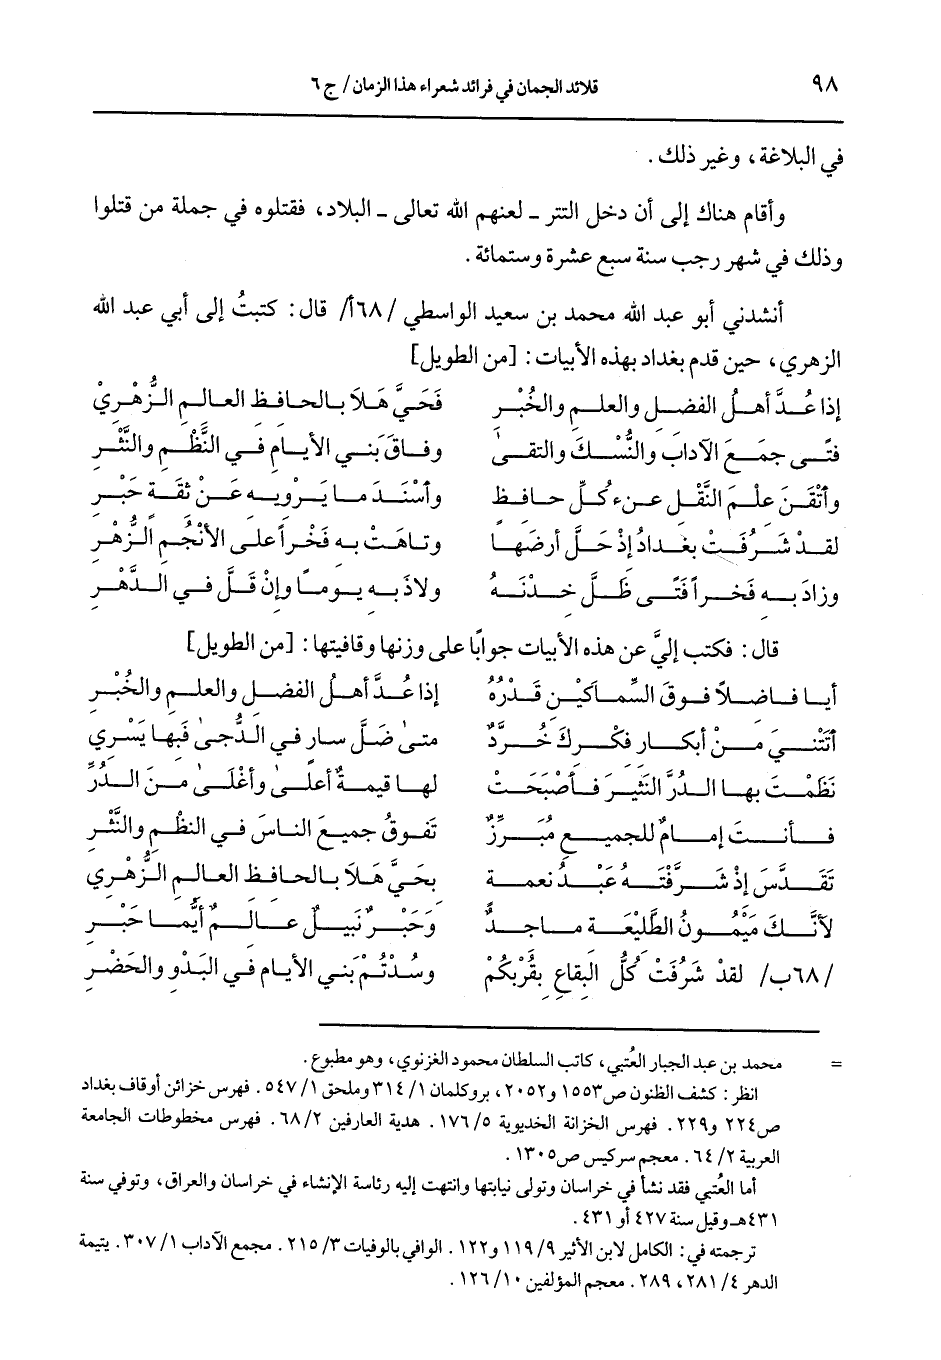 ٩٨
قلائد الجمان في فرائد شعراء هذا الزمان/ ج٦
في البلاغة، وغير ذلك.
وأقام هناك إلى أن دخل التتر ـ لعنهم الله تعالى ـ البلاد، فقتلوه في جملة من قتلوا
وذلك في شهر رجب سنة سبع عشرة وستمائة.
أنشدني أبو عبد الله محمد بن سعيد الواسطي /٦٨أ/ قال: كتبتُ إلى أبي عبد الله
الزهري، حين قدم بغداد بهذه الأبيات: [من الطويل]
إذا عُدَّ أهلُ الفضل والعلم والخُبْرِ فَحَيَّ هَلاَ بالحافظ العالم الزُّهْري
فتًى جمَع الآدابَ والنُّسْكَ والتقىٰ وفاقَ بَني الأيام في النَّظْم والنَّثْرِ
وأتْقَنَ علْمَ النَّقْل عنء كُلِّ حافظ وأسْنَدَ ما يَرويه عَنْ ثقَة حَبْرِ
لقدْ شَرُفَتْ بغدادُ إذْ حَلَّ أرضها وتاهَتْ به فَخْراً على الأنْجُم الزُّهْرِ
وزادَ به فَخْراً فَتًى ظَلَّ خدْنَهُ ولاذَ به يوماً وإنْ قَلَّ في الدَّهْرِ
قال: فكتب إليَّ عن هذه الأبيات جوابًا على وزنها وقافيتها: [من الطويل]
أيا فاضلاً فوقَ السِّماكَيْن قَدْرُهُ إذا عُدَّ أهلُ الفضل والعلم والخُبْرِ
أتَتْني مَنْ أبكار فكْركَ خُرَّدٌ متىٰ ضَلَّ سار في الدُّجىٰ فَبها يَسْري
نَظَمْتَ بها الدُرَّ النَّثيرَ فأصْبَحَتْ لها قيمةٌ أعلىٰ وأغْلَىٰ منَ الدُرِّ
فأنتَ إمامٌ للجميع مُبَرِّزٌ تَفوقُ جميعَ الناسَ في النظْم والنَّثْرِ
تَقَدَّسَ إذْ شَرَّفْتَهُ عَبْدُ نعمة بحَيَّ هَلاَ بالحافظ العالم الزُّهْري
لأنَّكَ مَيْمُونُ الطَّليْعَة ماجدٌ وَحَبْرٌ نَبيلٌ عالمٌ أيُّما حَبْرِ
/٦٨ب/ لقدْ شَرُفَتْ كُلُّ البقاع بقُرْبكُمْ وسُدْتُمْ بَني الأيام في البَدْو والحَضْرِ
= محمد بن عبد الجبار العُتبي، كاتب السلطان محمود الغزنوي، وهو مطبوع.
انظر: كشف الظنون ص١٥٥٣ و٢٠٥٢، بروكلمان ٣١٤/١ وملحق ٥٤٧/١. فهرس خزائن أوقاف بغداد
ص٢٢٤ و٢٢٩. فهرس الخزانة الخديوية ١٧٦/٥. هدية العارفين ٦٨/٢. فهرس مخطوطات الجامعة
العربية ٦٤/٢. معجم سركيس ص١٣٠٥.
أما العُتبي فقد نشأ في خراسان وتولى نيابتها وانتهت إليه رئاسة الإنشاء في خراسان والعراق، وتوفي سنة
٤٣١هـ وقيل سنة ٤٢٧ أو ٤٣١.
ترجمته في: الكامل لابن الأثير ١١٩/٩ و١٢٢. الوافي بالوفيات ٢١٥/٣. مجمع الآداب ٣٠٧/١. يتيمة
الدهر ٢٨١/٤، ٢٨٩. معجم المؤلفين ١٢٦/١٠.